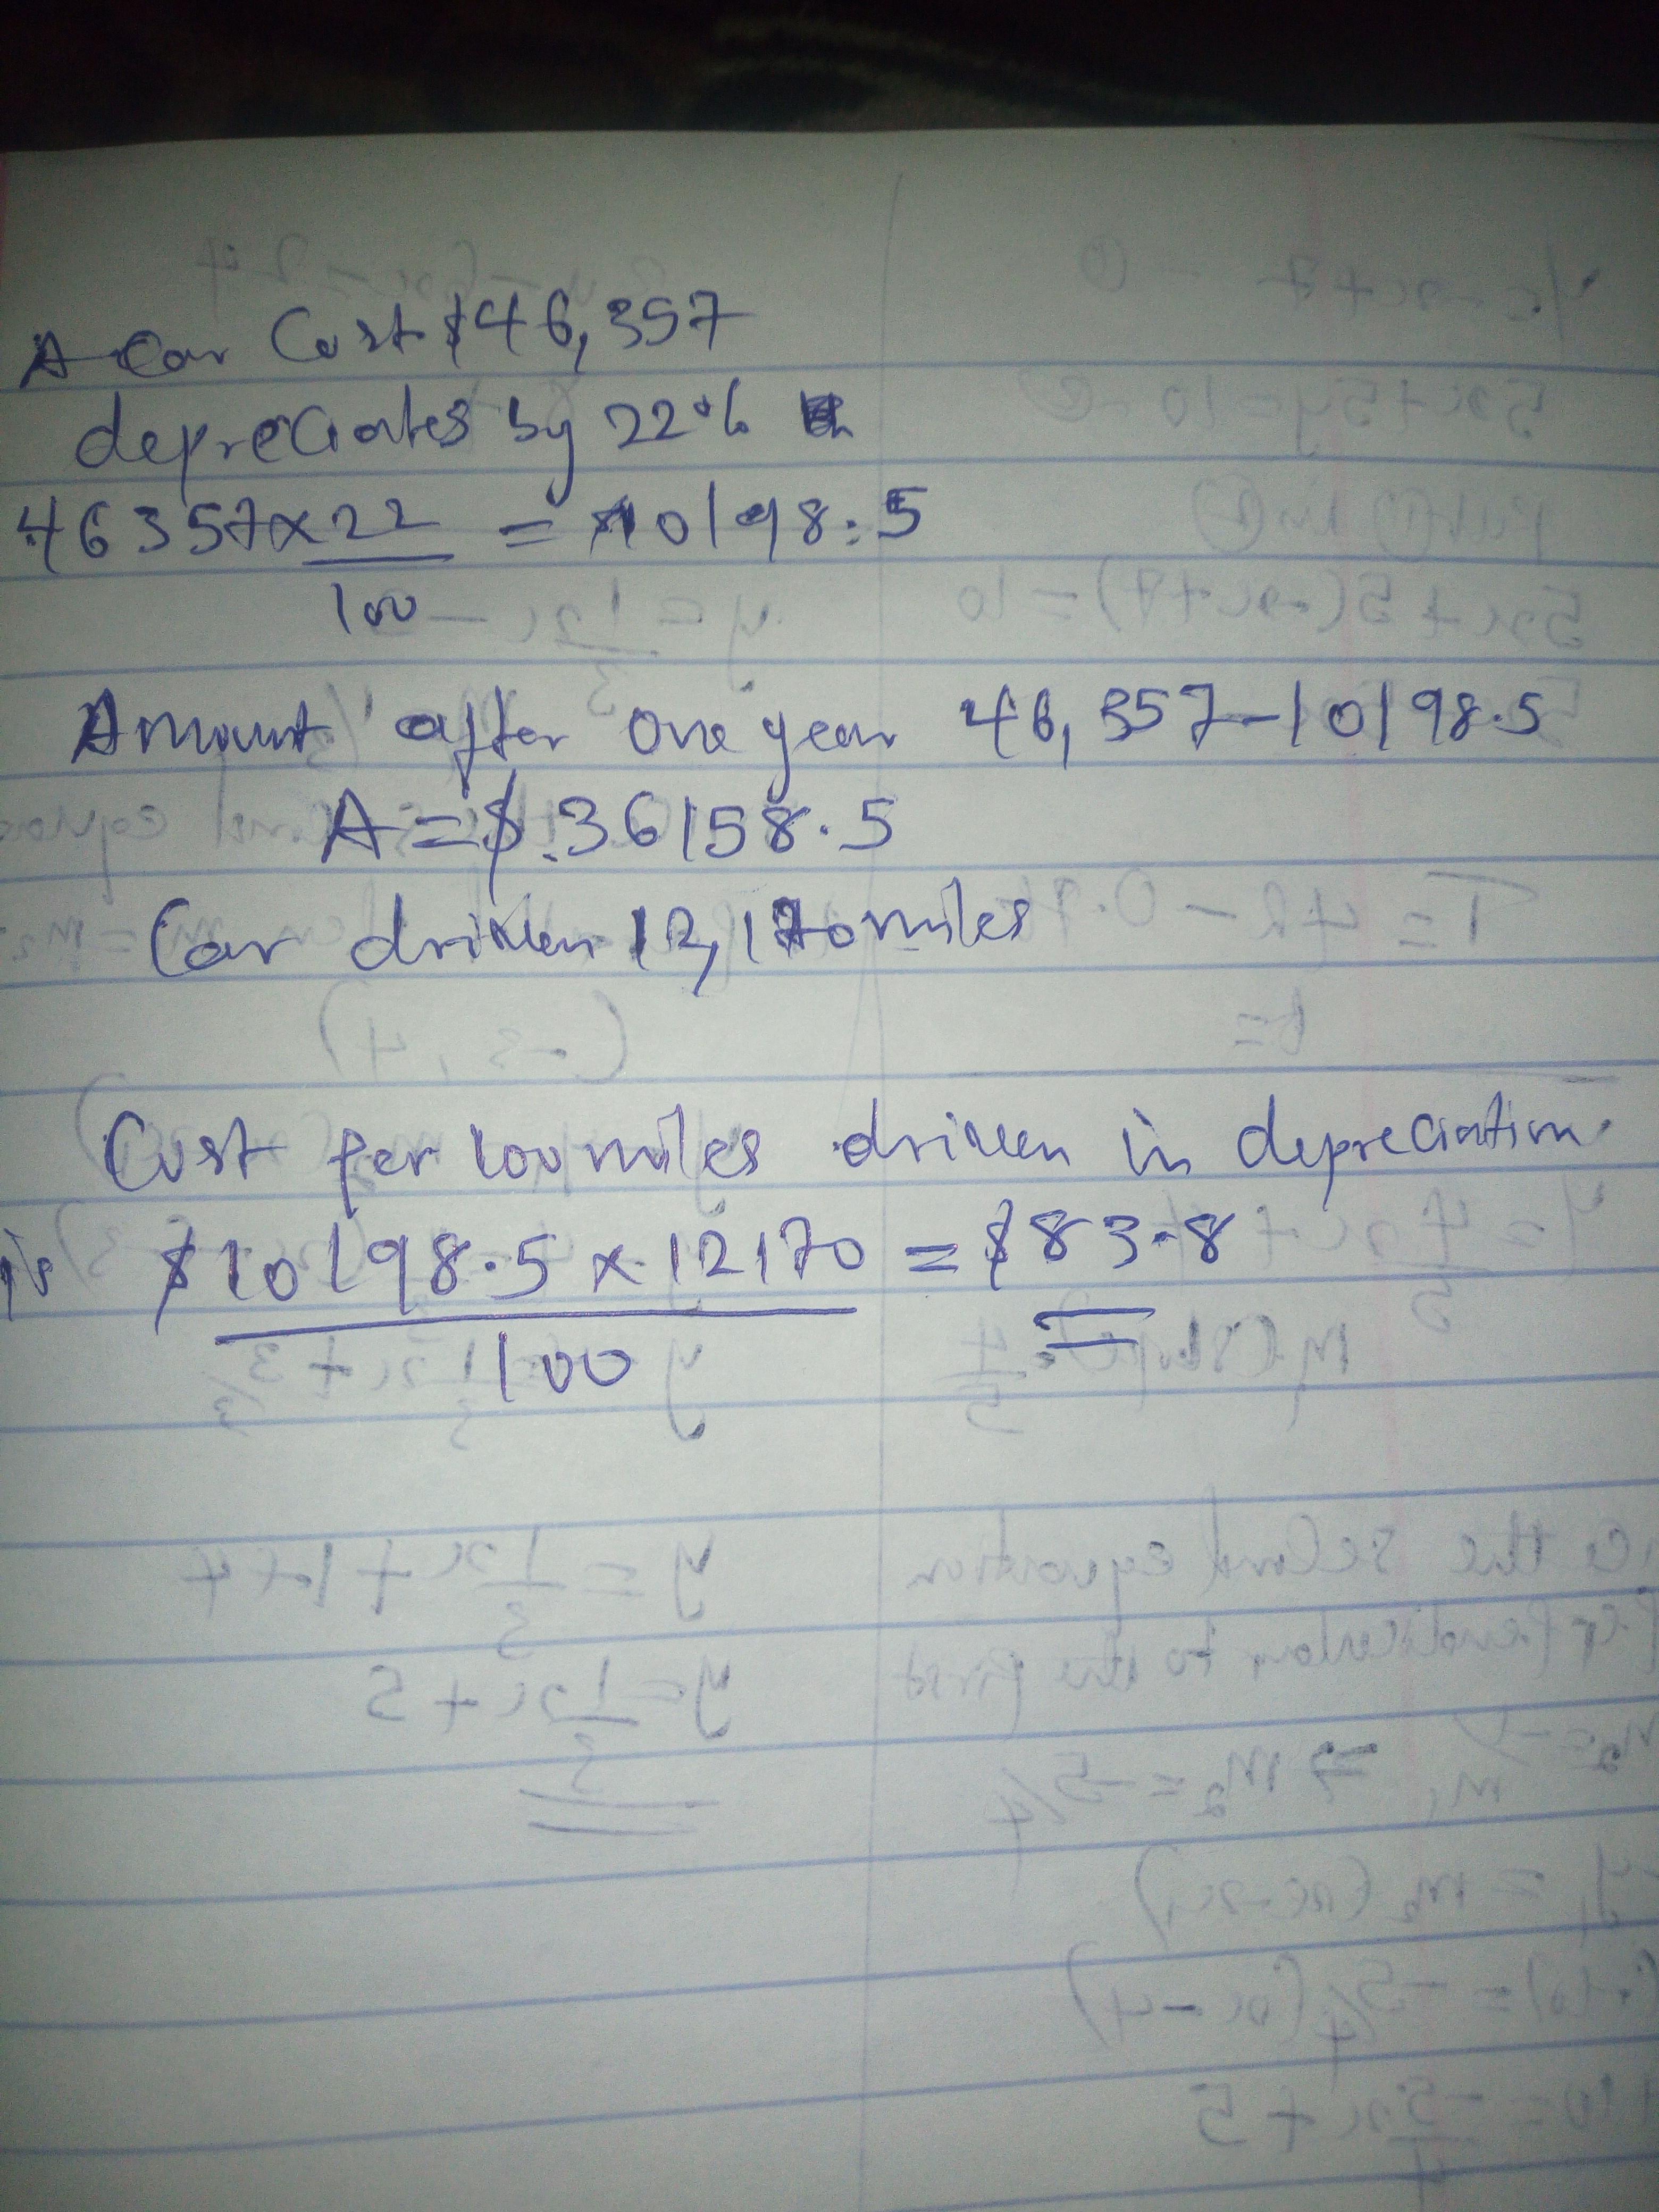 A car Cost $46,357
depreciates by 22%
46357 × 22/100 = 10198.5
Amount after one year 46,357 - 10198.5
A = $.36158.5
Car driven 12,170 miles
Cost per 100 miles driven in depreciation
is $10198.5 × 12170/100 = $83.8